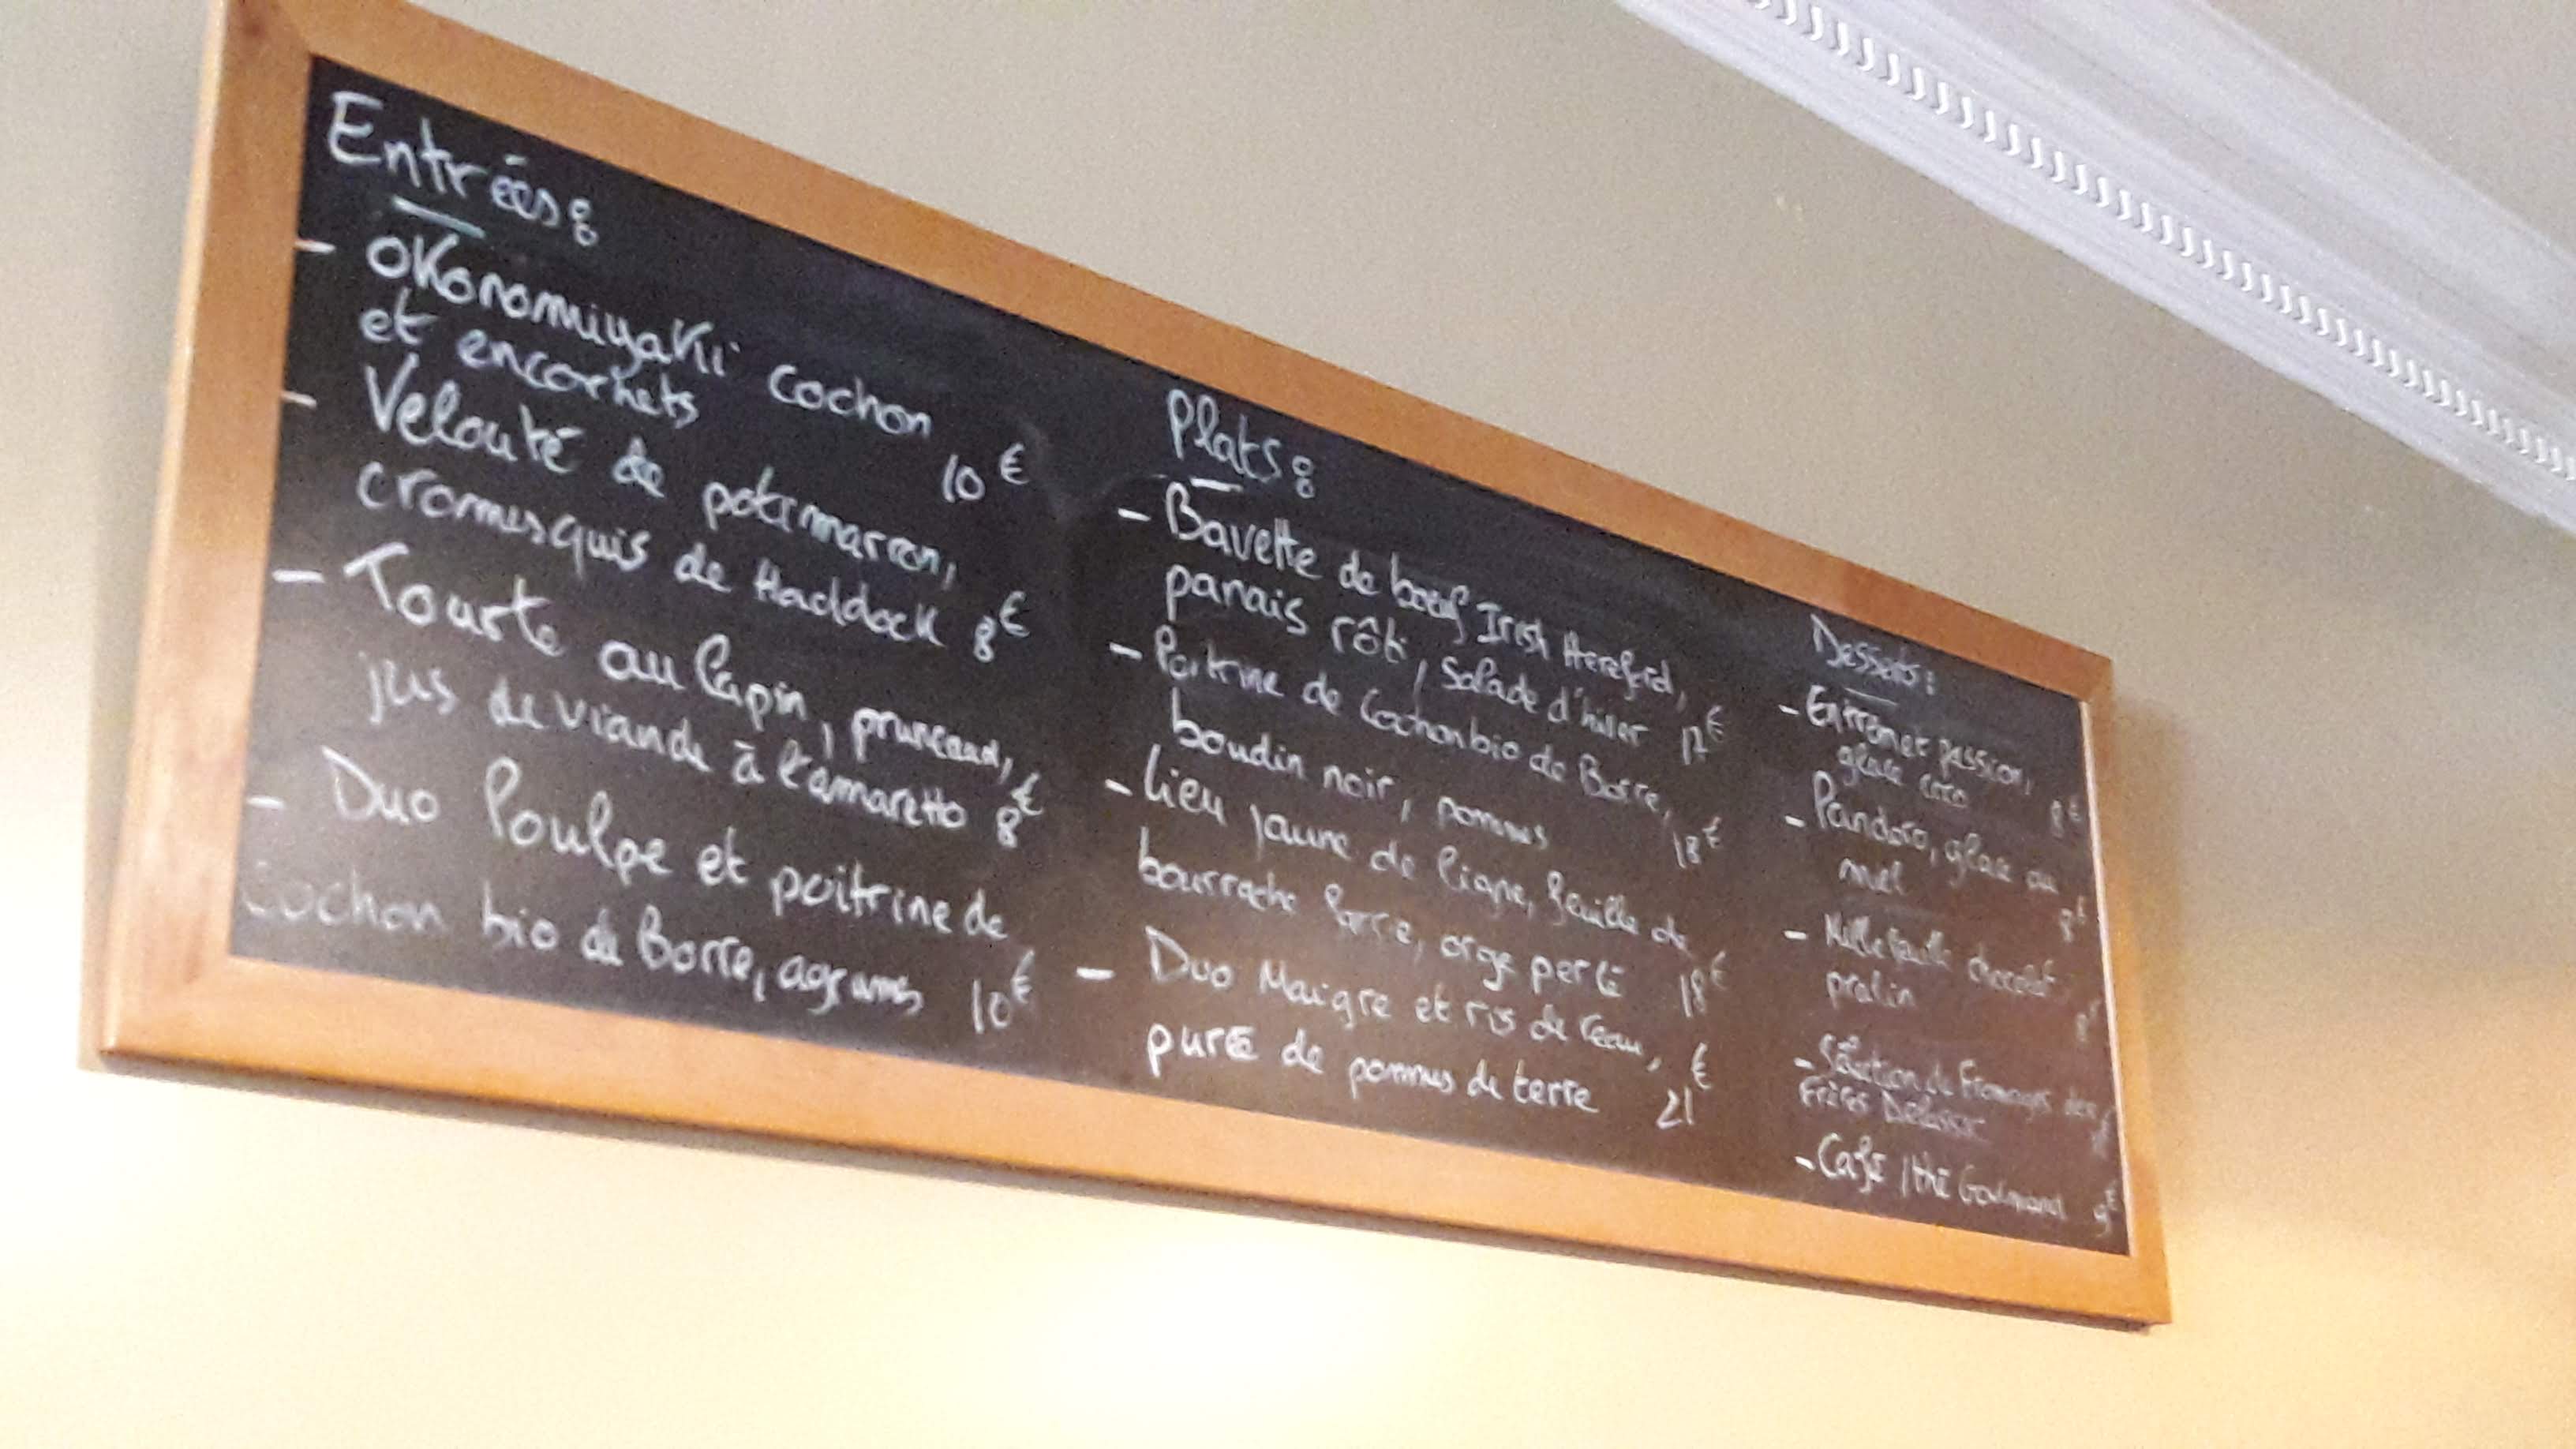 Entrées :
- Okonomiyaki cochon
et encornets 10€
- Velouté de potimarron,
cromesquis de Haddock 8€
- Tourte au lapin, pruneau,
jus de viande à l'amaretto 8€
- Duo Poulpe et poitrine de
Cochon bio de Borre, agrumes 10€
Plats :
- Bavette de bœuf Irish Hereford,
panais rôti, Salade d'hiver €
- Poitrine de Cochon bio de Borre,
boudin noir, pommes 18€
- Lieu jaune de ligne, feuille de
bourrache, orge perlé 18€
- Duo Maigre et ris de veau,
purée de pommes de terre 21€
Desserts :
- Entremet passion,
glace coco 8€
- Pandoro, glace au
miel 8€
- Millefeuille chocolat
pralin 8€
- Sélection de Fromages des
Frères
- Café / thé Gourmand 9€